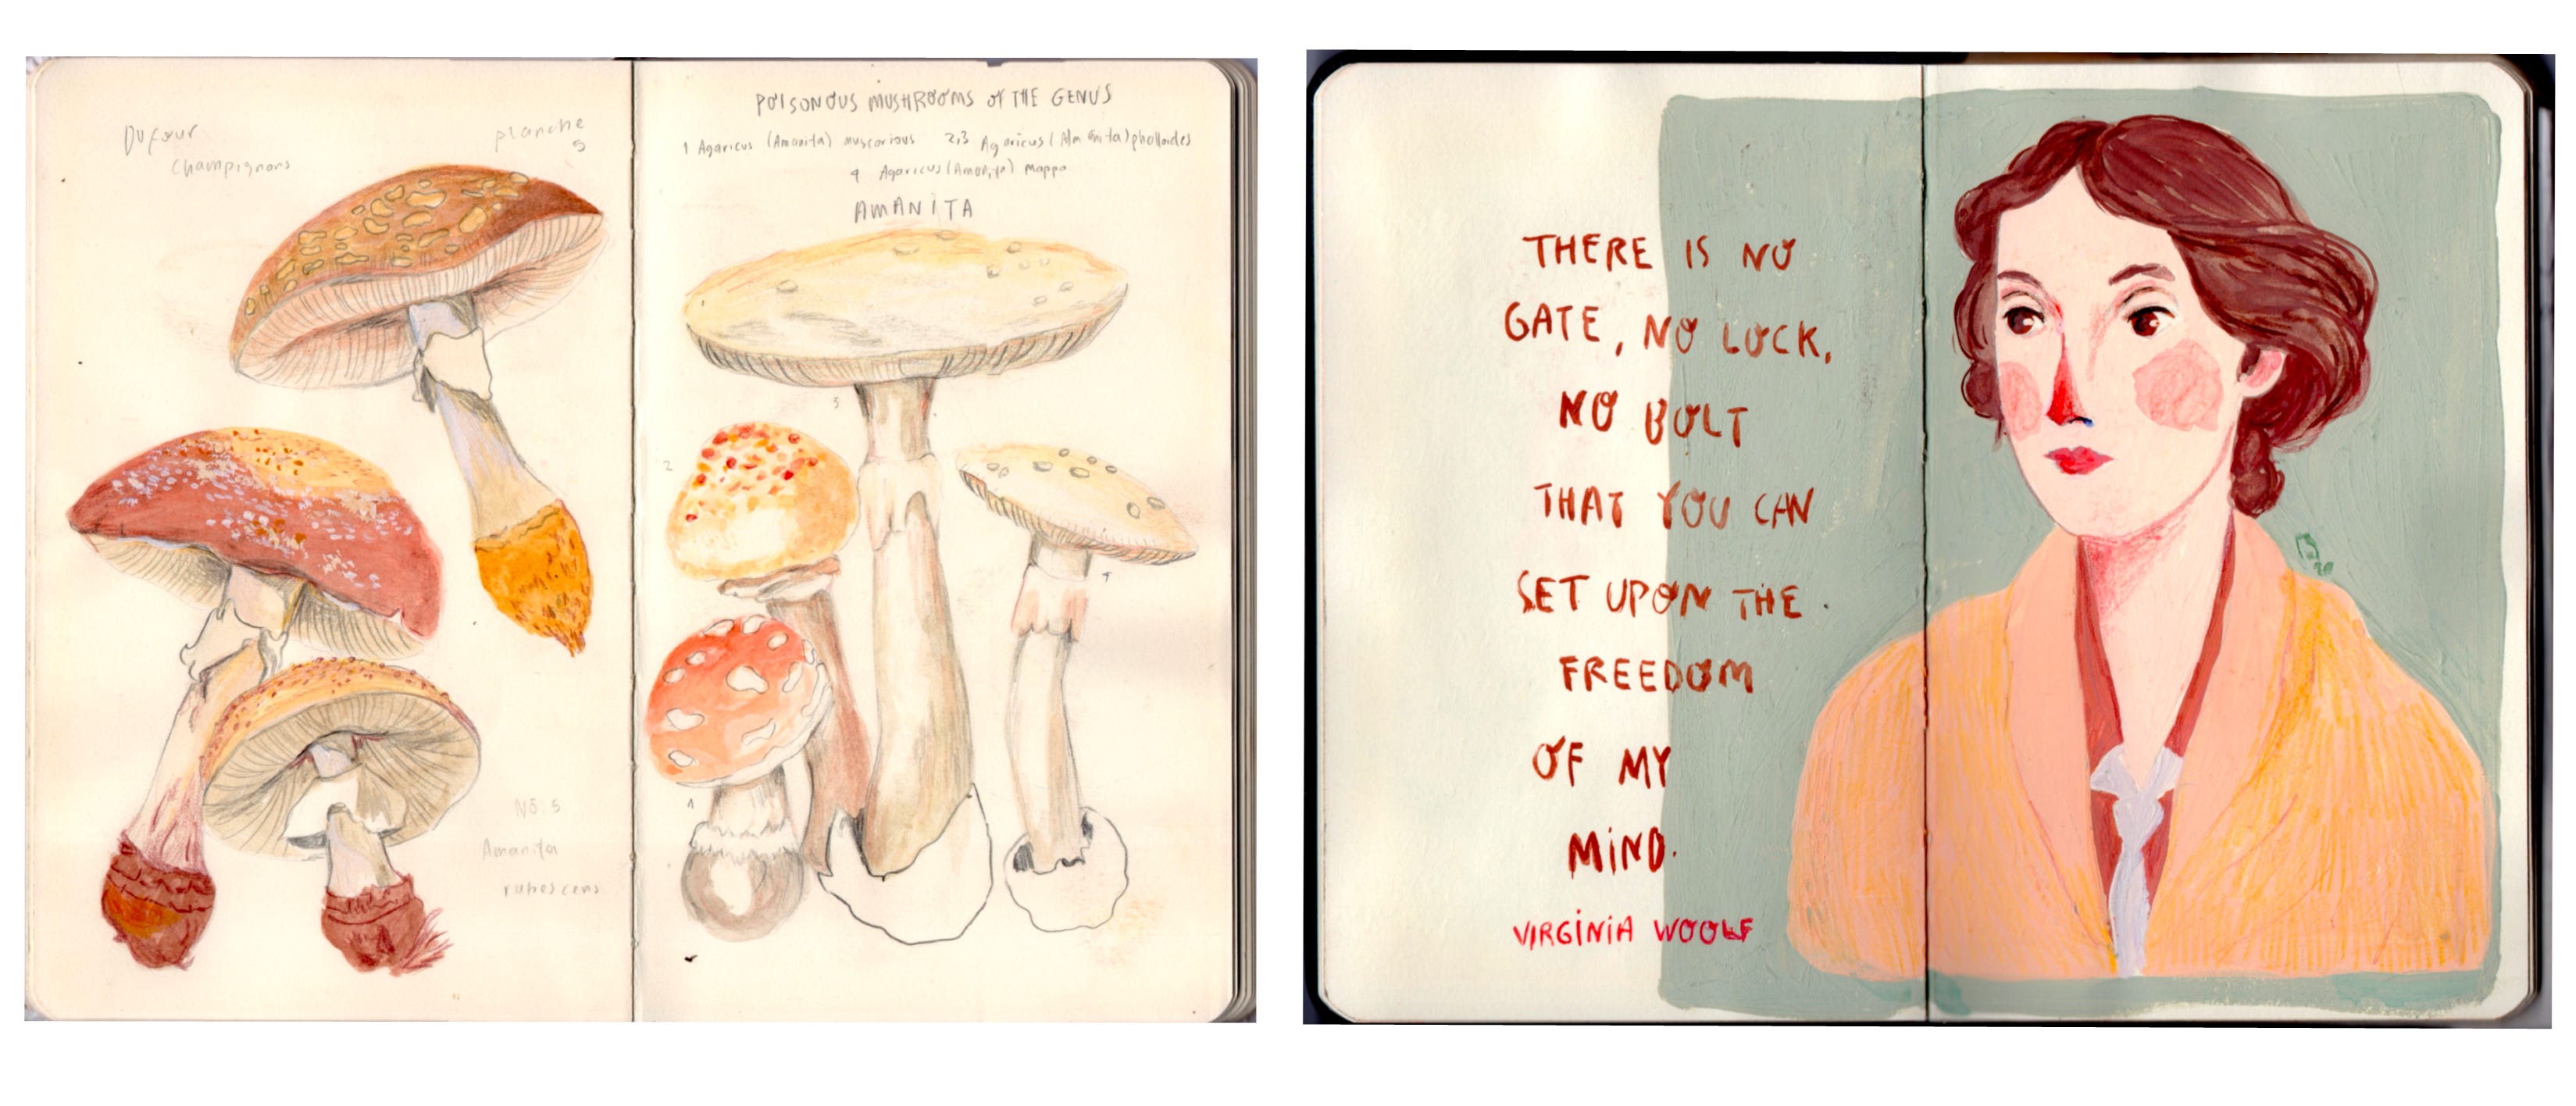 Dufour
Champignons
planche
5
No. 5
Amanita
rubescens
POISONOUS MUSHROOMS OF THE GENUS
1 Agaricus (Amanita) muscarious 2,3 Agaricus (Amanita) phalloides
4 Agaricus (Amanita) mappa
AMANITA
3
2
4
1
THERE IS NO
GATE, NO LOCK,
NO BOLT
THAT YOU CAN
SET UPON THE
FREEDOM
OF MY
MIND.
VIRGINIA WOOLF